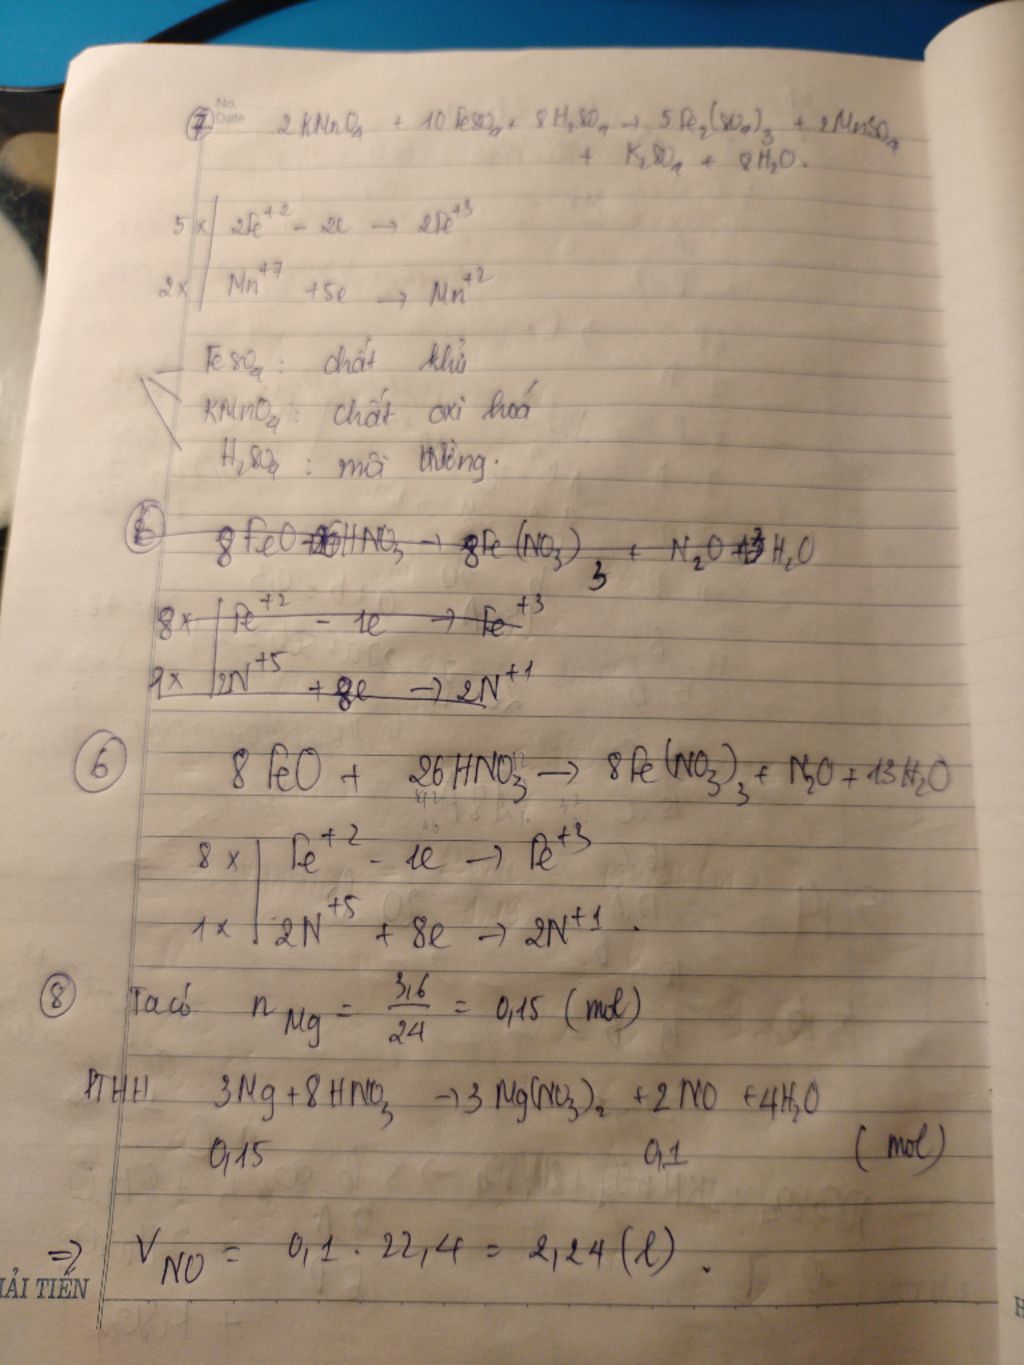 No.
Date
⑦ 2KMnO₄ + 10FeSO₄ + 8H₂SO₄ → 5Fe₂(SO₄)₃ + 2MnSO₄
+ K₂SO₄ + 8H₂O.
5 x | 2Fe⁺² - 2e → 2Fe⁺³
2x | Mn⁺⁷ + 5e → Mn⁺²
FeSO₄ : chất khử
KMnO₄ : chất oxi hoá
H₂SO₄ : môi trường.
8FeO + 26HNO₃ → 8Fe(NO₃)₃ + N₂O + 13H₂O
8x | Fe⁺² - 1e → Fe⁺³
1x | 2N⁺⁵ + 8e → 2N⁺¹
⑥ 8FeO + 26HNO₃ → 8Fe(NO₃)₃ + N₂O + 13H₂O
8 x | Fe⁺² - 1e → Fe⁺³
1x | 2N⁺⁵ + 8e → 2N⁺¹.
⑧ Ta có n Mg = 3,6/24 = 0,15 (mol)
PTHH 3Mg + 8HNO₃ → 3Mg(NO₃)₂ + 2NO + 4H₂O
0,15 0,1 (mol)
=> V NO = 0,1 . 22,4 = 2,24 (l).
ẢI TIẾN
H